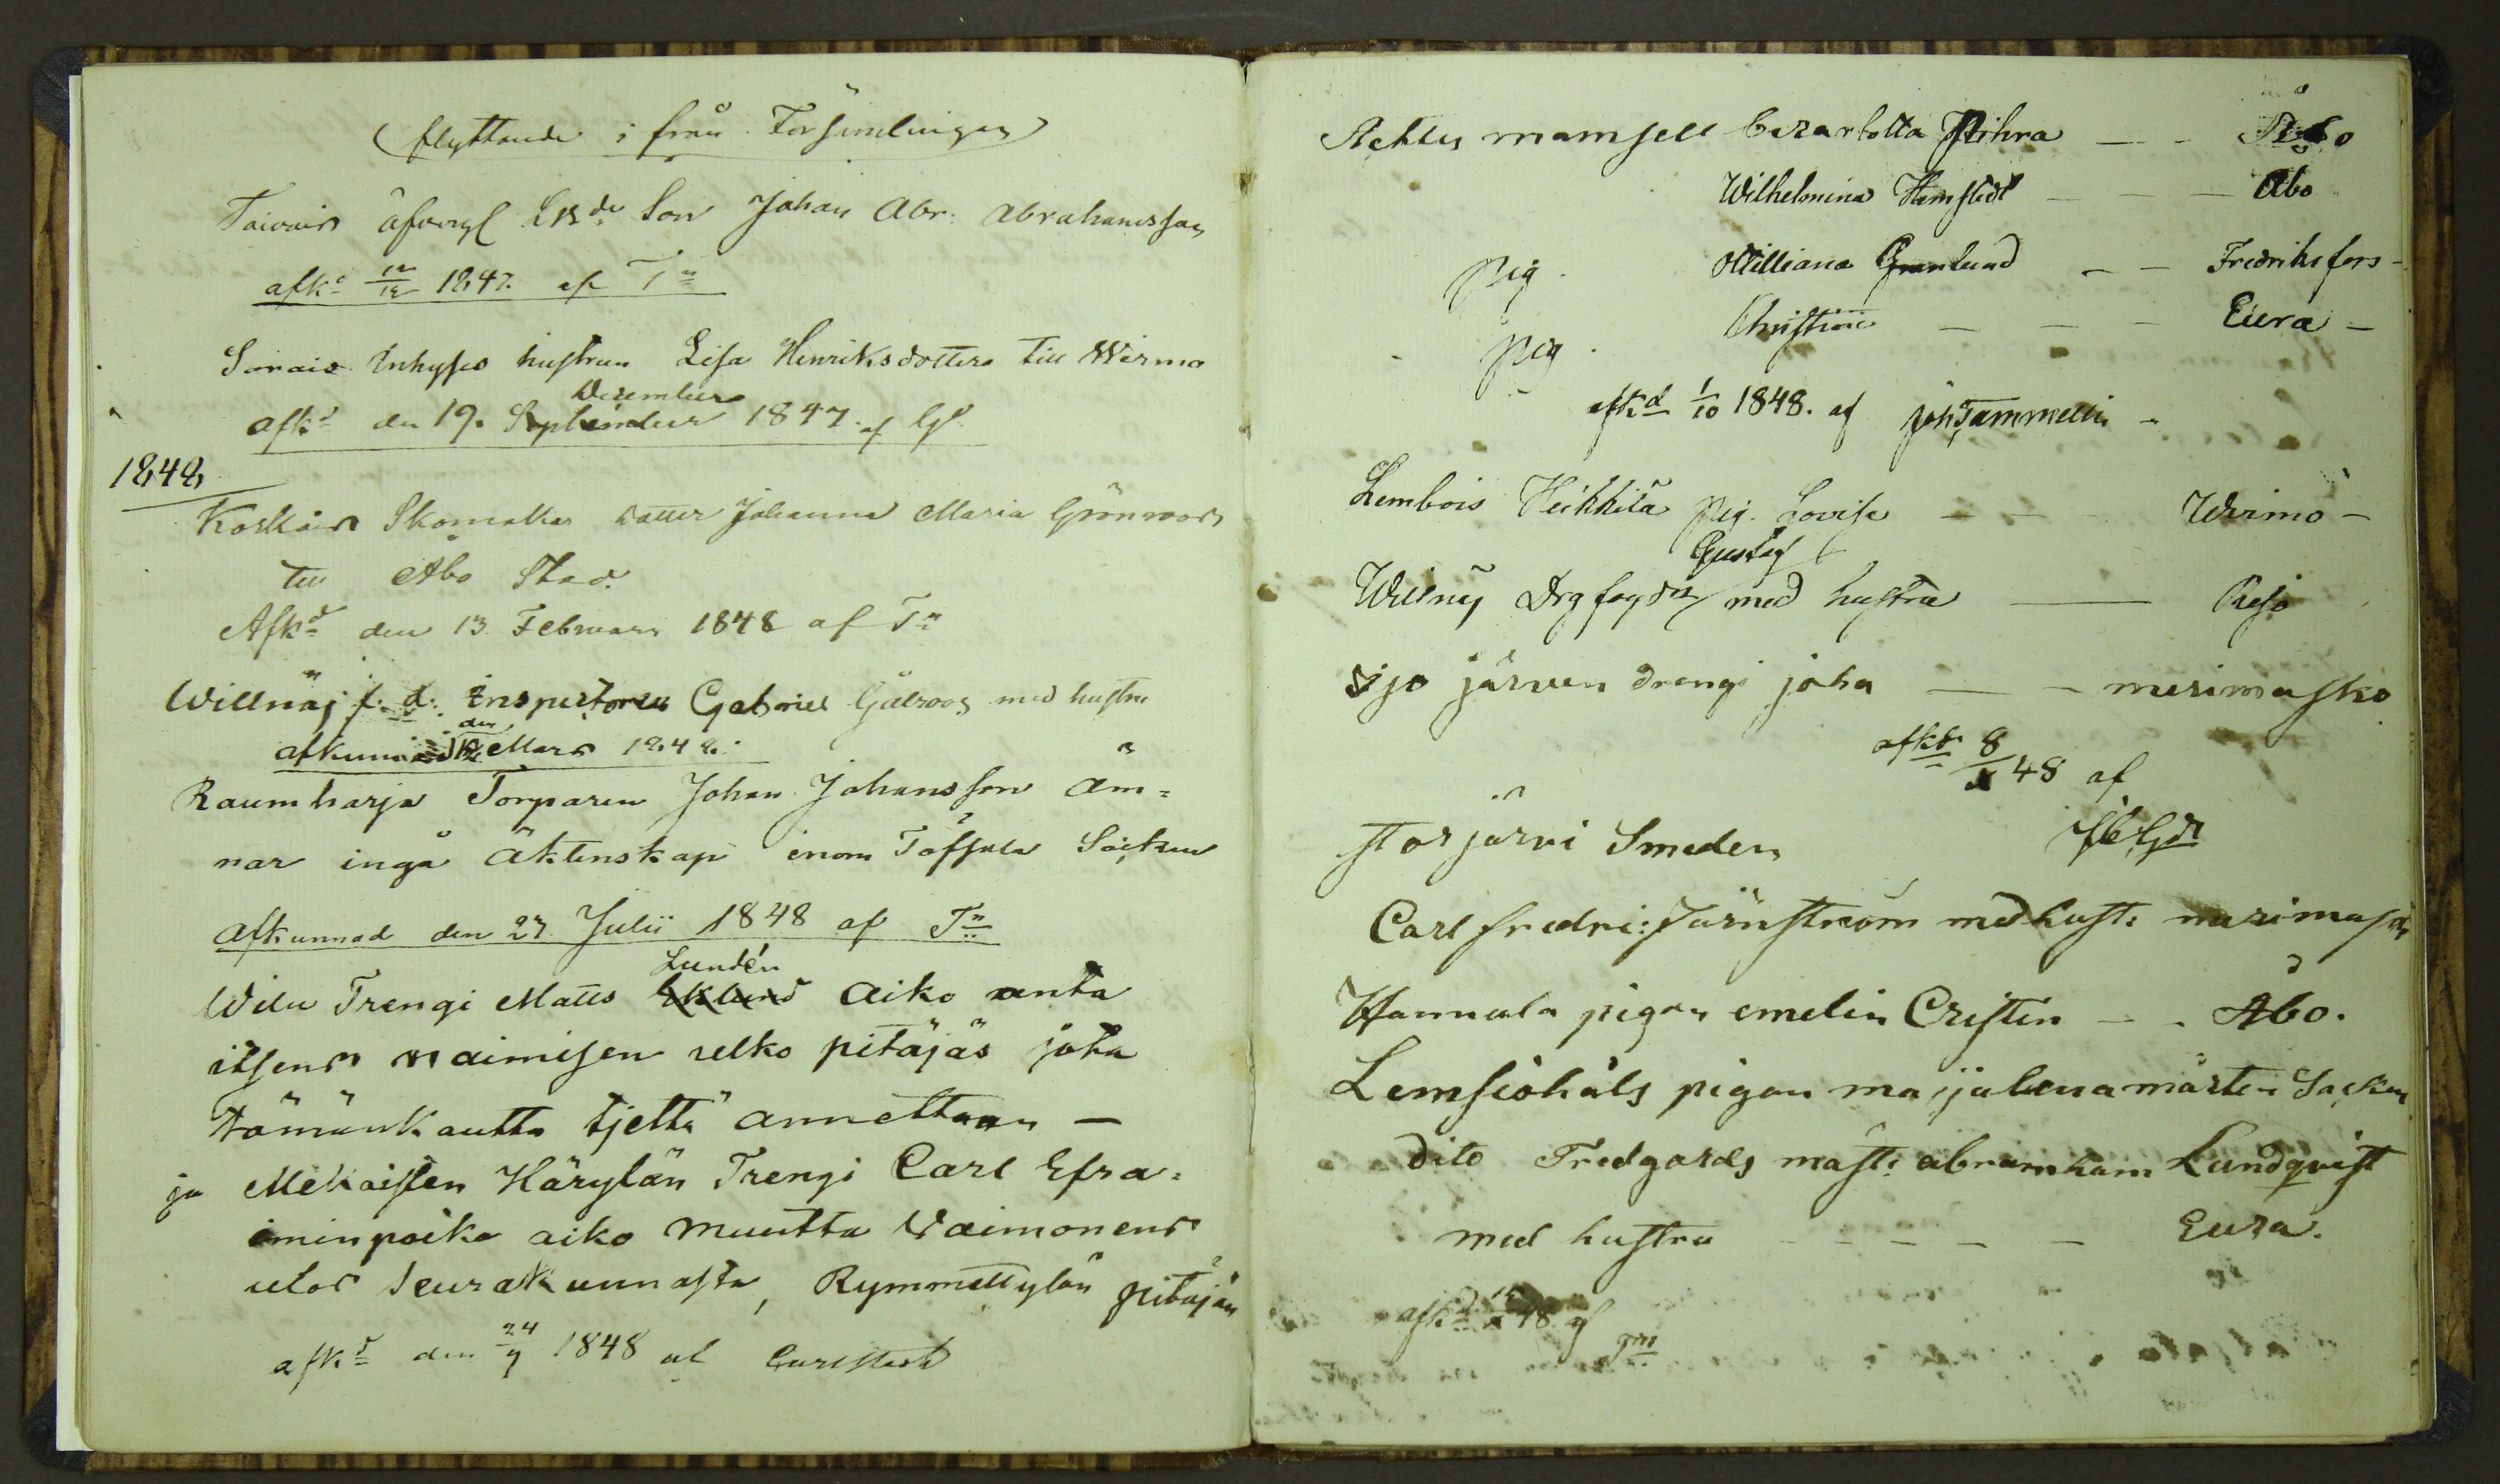 flyttande i från Församlingen
Taivais Johan Abr. Abrahamsson
afkd 12/12 1847 af Tn
Sorais Inhyses hustrun Lisa Henriksdotter till Wirmo
December
afkd den 19. September 1847 af
1848
Koskais Skomakar dotter Johanna Maria Grönroos
till Åbo Stad.
Afkd den 13 Februari 1848 af Tn
Willnäs f. d. Inspectoren Gabriel med hustru
den
afkunnad Mars 1848.
Raumharja Torparen Johan Johansson äm=
nar ingå Äktenskap inom Töfsala Socken
Afkunnad den 27 Julii 1848 af Tn
Lundén
Wilu Trengi Matts Eklund aiko anta
itsens naimisen ulko pitäjäs joka
tämänkautta tjettä annettaan —
ja Mekaisten Härylän Trengi Carl Efra=
iminpoika aiko muutta Vaimonens
ulos seurakunnasta, Rymmettylän pitäjän
afkd den 24/9 1848 af Carlstedt
mamsell
Wilhelmina — — — Åbo
pig. Williana Granlund — — Fredriksfors —
pig. Christina — — — Eura —
afkd 1/10 1848. af Joh Tammelin —
Lembois Heikkilä pig. Lovisa — — Wirmo —
Gustaf
Willnäs med hustru — Reso
järven drengi joha — — merimasko
afkd 8/ 48 af
storjärvi Smeden
Carl fredri: Järnström med hust: merimasko
Hannula pigan emelin Cristin — — Åbo.
Lemsiöhåls pigan majjalena mårtens Sacken
dito Tredgårds mäst: abramham Lundqvist
med hustru — — — — — Eura.
afkd 48 af
Tn